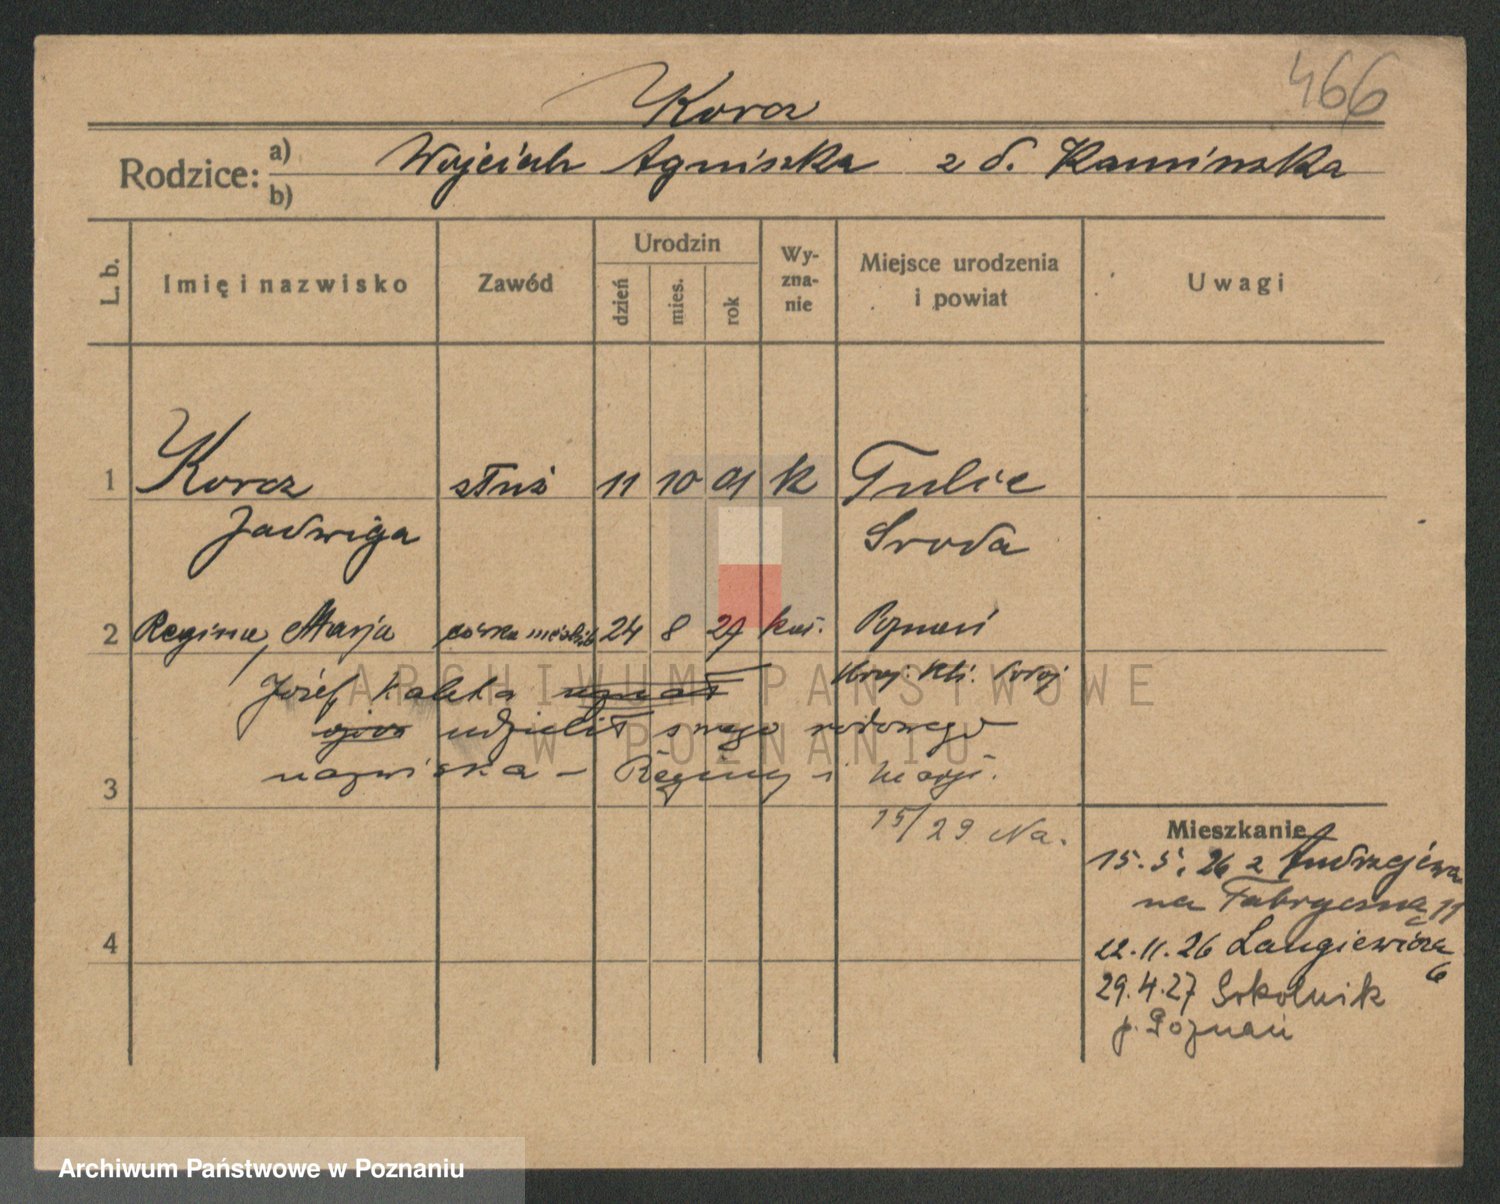 466
Korcz
Rodzice: a) b) Wojciech Agniszka z d. Kaminska
L. b. Imię i nazwisko Zawód Urodzin dzień mies. rok Wy-zna-nie Miejsce urodzenia i powiat Uwagi
1 Korcz służ 11 10 01 k Tulce
Jadwiga Sroda
2 Regina, Marja córka nieślub 24 8 27 kat. Poznań
Józef Kaleka uznał
ojcos udzielił swego rodowego
nazwiska – Reginy i Marji.
3
15/29 Na.
Mieszkanie
15.5.26 z Andrzejewa
na Fabryczną 11
4
22.11.26 Langiewicza
6
29.4.27 Sokolnik
p. Poznań
ARCHIWUM PAŃSTWOWE
W POZNANIU
Archiwum Państwowe w Poznaniu